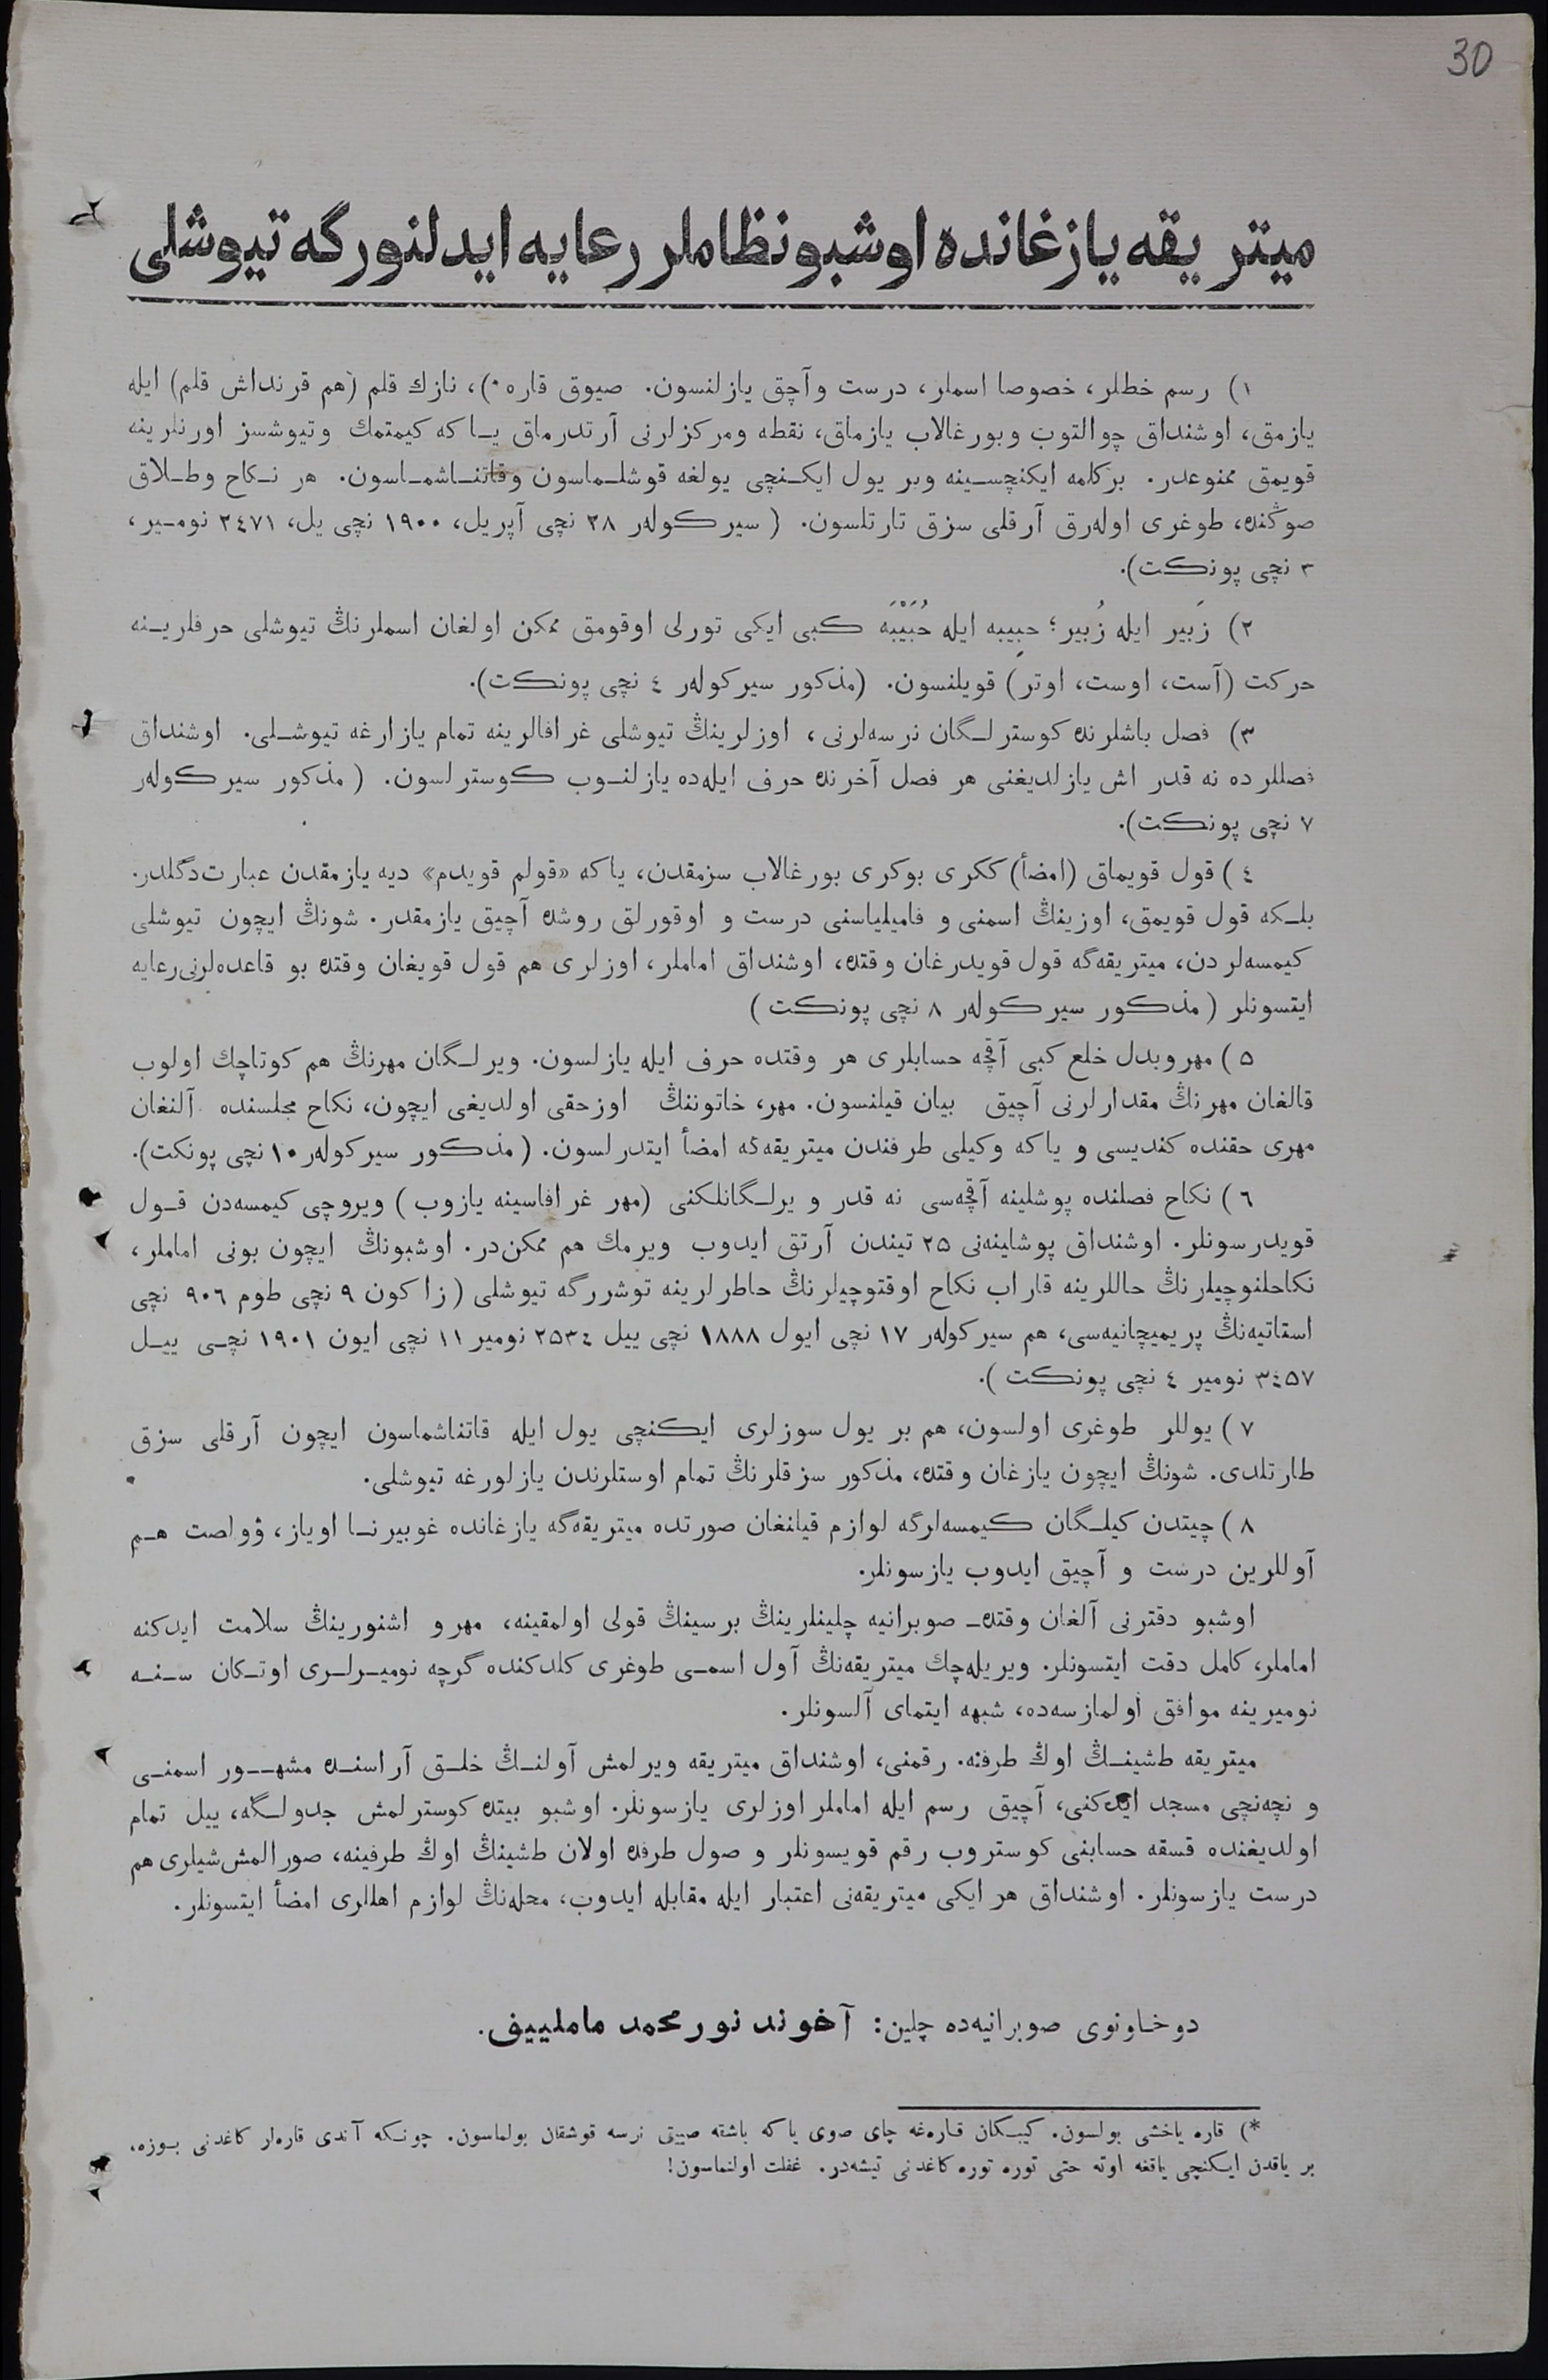 30
ميتريقه يازغانده اوشبو نظاملر رعايه ايدلنورگه تيوشلی
١) رسم خطلر، خصوصا اسملر، درست وآچق يازلنسون. صيوق قاره *)، نازك قلم (هم قرنداش قلم) ايله
يازمق، اوشنداق چوالتوب وبورغالاب يازماق، نقطه ومركزلرنی آرتدرماق يا كه كيمتمك وتيوشسز اورنلرينه
قويمق ممنوعدر. بركلمه ايكنچسينه وبر يول ايكنچی يولغه قوشلماسون وقاتناشماسون. هر نكاح وطلاق
صوڭنده، طوغری اولەرق آرقلی سزق تارتلسون. (سيركولەر ٢٨ نچی آپريل، ١٩٠٠ نچی يل، ٢٤٧١ نومير،
٣ نچی پونكت).
٢) زَبير ايله زُبير؛ حبِيبه ايله حُبَيْبَه كبی ايكی تورلی اوقومق ممكن اولغان اسملرنڭ تيوشلی حرفلرينه
حركت (آست، اوست، اوتر) قويلنسون. (مذكور سيركولەر ٤ نچی پونكت).
٣) فصل باشلرنده كوسترلگان نرسەلرنی، اوزلرينڭ تيوشلی غرافالرينه تمام يازارغه تيوشلی. اوشنداق
فصللرده نه قدر اش يازلديغنی هر فصل آخرنده حرف ايلەده يازلنوب كوسترلسون. (مذكور سيركولەر
٧ نچی پونكت).
٤) قول قويماق (امضأ) ككری بوكری بورغالاب سزمقدن، ياكه «قولم قويدم» ديه يازمقدن عبارت دگلدر.
بلكه قول قويمق، اوزينڭ اسمنی و فاميلياسنی درست و اوقورلق روشده آچيق يازمقدر. شونڭ ايچون تيوشلی
كيمسەلردن، ميتريقەگه قول قويدرغان وقتده، اوشنداق اماملر، اوزلری هم قول قويغان وقتده بو قاعدەلرنی رعايه
ايتسونلر (مذكور سيركولەر ٨ نچی پونكت)
٥) مهر وبدل خلع كبی آقچه حسابلری هر وقتده حرف ايله يازلسون. ويرلگان مهرنڭ هم كوتاچك اولوب
قالغان مهرنڭ مقدارلرنی آچيق بيان قيلنسون. مهر، خاتوننڭ اوزحقی اولديغی ايچون، نكاح مجلسنده آلنغان
مهری حقنده كنديسی و ياكه وكيلی طرفندن ميتريقەگه امضأ ايتدرلسون. (مذكور سيركولەر ١٠ نچی پونكت).
٦) نكاح فصلنده پوشلينه آقچەسی نه قدر ويرلگانلكنی (مهر غرافاسينه يازوب) ويروچی كيمسەدن قول
قويدرسونلر. اوشنداق پوشلينەنی ٢٥ تيندن آرتق ايدوب ويرمك هم ممكن در. اوشبونڭ ايچون بونی اماملر،
نكاحلنوچيلرنڭ حاللرينه قاراب نكاح اوقتوچيلرنڭ خاطرلرينه توشررگه تيوشلی (زاكون ٩ نچی طوم ٩٠٦ نچی
استاتيەنڭ پريميچانيەسی، هم سيركولەر ١٧ نچی ايول ١٨٨٨ نچی ييل ٢٥٣٤ نومير ١١ نچی ايون ١٩٠١ نچی ييل
٣٤٥٧ نومير ٤ نچی پونكت).
٧) يوللر طوغری اولسون، هم بر يول سوزلری ايكنچی يول ايله قاتناشماسون ايچون آرقلی سزق
طارتلدی. شونڭ ايچون يازغان وقتده، مذكور سزقلرنڭ تمام اوستلرندن يازلورغه تيوشلی.
٨) چيتدن كيلگان كيمسەلرگه لوازم قيلنغان صورتده ميتريقەگه يازغانده غوبيرنا اوياز، وولصت هم
آوللرين درست و آچيق ايدوب يازسونلر.
اوشبو دفترنی آلغان وقتده صوبرانيه چلينلرينڭ برسينڭ قولی اولمقينه، مهر و اشنورينڭ سلامت ايدكنه
اماملر، كامل دقت ايتسونلر. ويريلەچك ميتريقەنڭ آول اسمی طوغری كلدكنده گرچه نوميرلری اوتكان سنه
نوميرينه موافق اولمازسەده، شبهه ايتمای آلسونلر.
ميتريقه طشينڭ اوڭ طرفنه. رقمنی، اوشنداق ميتريقه ويرلمش آولنڭ خلق آراسنده مشهور اسمنی
و نچەنچی مسجد ايدكنی، آچيق رسم ايله اماملر اوزلری يازسونلر. اوشبو بيتده كوسترلمش جدولگه، ييل تمام
اولديغنده قسقه حسابنی كوستروب رقم قويسونلر و صول طرفده اولان طشينڭ اوڭ طرفينه، صورالمش شيلری هم
درست يازسونلر. اوشنداق هر ايكی ميتريقەنی اعتبار ايله مقابله ايدوب، محلەنڭ لوازم اهللری امضأ ايتسونلر.
دوخاونوی صوبرانيەده چلين: آخوند نورمحمد مامليييف.
*) قاره ياخشی بولسون. كيبكان قارەغه چای صوی ياكه باشقه صييق نرسه قوشقان بولماسون. چونكه آندی قارەلر كاغدنی بوزه،
بر ياقدن ايكنچی ياقغه اوته حتی توره توره كاغدنی تيشەدر. غفلت اولنماسون!